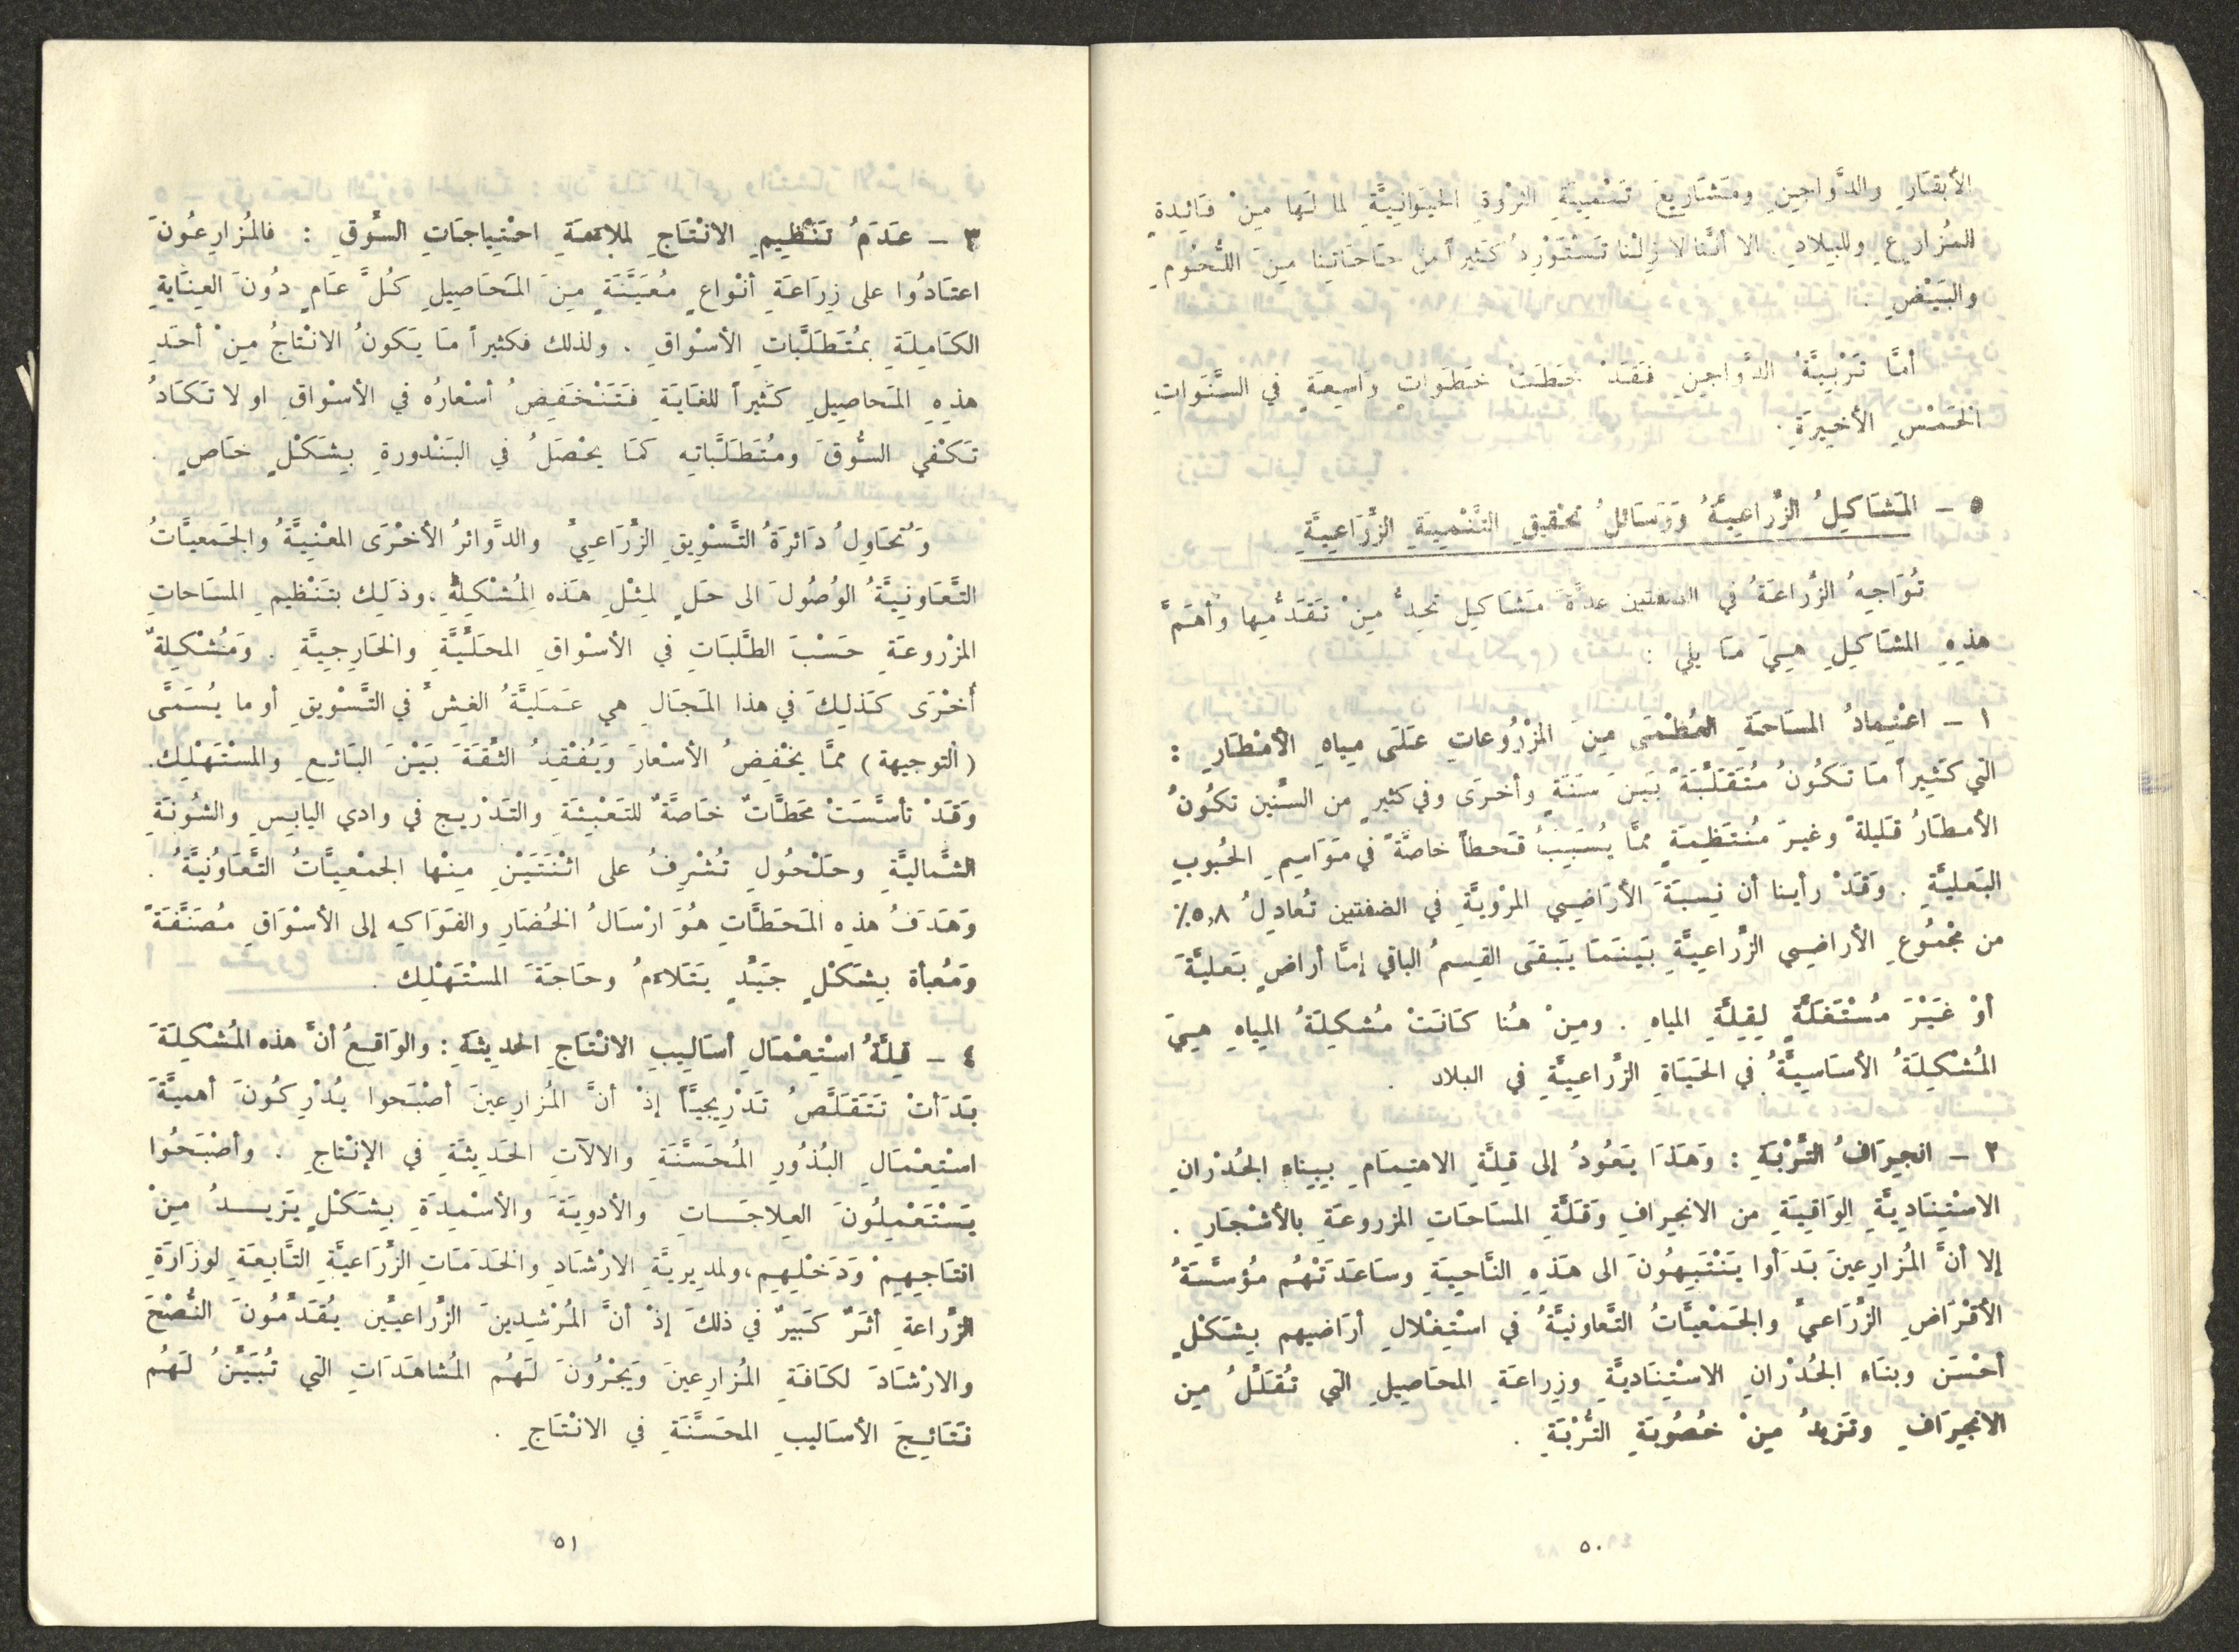 الأبقَارِ والدَّواجِنِ ومَشَارِيعَ تَنْمِيَةِ الثرْوَةِ الحيَوَانِيَّةِ لما لَها مِنْ فَائِدةٍ
للمُزارِعِ وللبِلادِ . الا أنَّنا لا زِلْنا نَسْتَوْرِدُ كَثيراً من حَاجَاتِنا مِنَ اللُّحُومِ
والبَيْضِ .
أمَّا تَرْبِيَةُ الدَّواجِنِ فَقَدْ خَطَتْ خَطَواتٍ واسِعَةٍ في السَّنَواتِ
الخَمْسِ الأخِيرَةِ .
٥ – المَشَاكِلُ الزِّراعيَّةُ وَوَسَائلُ تحْقيقِ التَّنْمِيَةِ الزِّرَاعِيَّةِ
تُوَاجِهُ الزِّراعَةُ في الضفتين عدَّةَ مَشَاكِلَ تحِدُّ مِنْ تَقَدُّمِها وأهَمَّ
هذِهِ المشَاكِلِ هِيَ مَا يلي :
١ – اعْتِمادُ المسَاحَةِ العُظْمَى مِنَ المَزْرُوعاتِ عَلَى مِياهِ الأمْطَارِ :
التي كَثِيراً مَا تَكُونُ مُتَقَلِّبَةً بَينَ سَنَةٍ وأخرَى وفي كثيرٍ من السِّنين تكُونُ
الأمطَارُ قَليلةً وغيرَ مُنتَظِمَةٍ ممَّا يُسَبِبُ قَحطاً خاصَّةً في مَوَاسِمِ الحُبوبِ
البَعليَّةِ . وَقَدْ رأينا أن نِسبَةَ الأرَاضِي المرْويَّةِ في الضفتين تُعادِلُ ٥,٨٪
من مجْمُوعِ الأراضِي الزِّراعِيَّةِ بَينَمَا يَبقَى القِسمُ الباقي إمَّا أراضٍ بَعليَّةَ
أوْ غَيْرَ مُسْتَغَلَّةٍ لِقِلَّةِ المياهِ . ومِنْ هُنا كَانَتْ مُشكِلَةُ المِياهِ هِيَ
المُشْكِلَةُ الأسَاسِيَّةُ في الحَيَاةِ الزِّراعِيَّةِ في البلاد .
٢ – انجِرَافُ التُّرْبَةِ : وَهَذَا يَعُودُ إلى قِلَّةِ الاهتِمَامِ بِبِناءِ الجُدْرانِ
الاسْتِنَادِيَّةِ الوَاقِيَةِ من الانجِرافِ وَقَلَّةِ المسَاحَاتِ المزروعَةِ بالأشْجَارِ .
إلا أنَّ المُزارِعينَ بَدَأوا يَنْتَبِهُونَ الى هَذِهِ النَّاحِيَةِ وسَاعَدَتْهُم مُؤسَّسَةُ
الأقْرَاضِ الزِّرَاعيِّ والجَمْعيَّاتُ التَّعاونيَّةُ في اسْتِغلالِ أرَاضِيهم بِشَكْلٍ
أحْسَن وبنَاءِ الجُدْرانِ الاسْتِنَاديَّةِ وزِراعَةِ المحَاصِيلِ التي تُقَلِّلُ مِن
الانجِرَافِ وتَزيدُ مِنْ خُصُوبَةِ التُّرْبَةِ .
٥٠
٣ – عَدَمُ تَنْظِيمِ الانْتَاجِ لملاءَمَةِ احتِياجَاتِ السُّوقِ : فالمُزارِعُونَ
اعتَادُوا على زِرَاعَةِ أنْواعٍ مُعَيَّنَةٍ مِنَ المَحَاصِيلِ كُلَّ عَامٍ دُونَ العِنَايةِ
الكَامِلَةِ بمُتَطَلَّبَاتِ الأسْواقِ . ولذلك فكثيراً مَا يَكونُ الانْتاجُ مِنْ أحَدِ
هذِهِ المَحاصِيلِ كَثيراً للغَايَةِ فَتَنْخَفِضُ أسْعارُه في الأسْواقِ او لا تَكَادُ
تَكْفي السُّوقَ ومُتَطَلَّباتِه كَمَا يحْصَلُ في البَنْدورةِ بِشَكْلٍ خَاصٍ .
وَتحَاوِلُ دَائرَةُ التَّسْويقِ الزِّرَاعِيِّ والدَّوائرُ الأخْرَى المعْنِيَّةُ والجَمعيَّاتُ
التَّعَاونِيَّةُ الوُصُولَ الى حَلٍ لمِثلِ هَذه المُشْكِلَةِ ، وذلِك بتَنْظيمِ المسَاحاتِ
المزْروعَةِ حَسْبَ الطَّلَبَاتِ في الأسْواقِ المحَلِّيَّةِ والخَارِجِيَّةِ . وَمُشْكِلةٌ
أُخْرَى كَذلِكَ في هذا المَجَالِ هي عَمَليَّةُ الغِشِّ في التَّسْويقِ أو ما يُسَمَّى
( التوجيهة ) ممَّا يخْفِضُ الأسْعارَ وَيُفْقِدُ الثِّقَةَ بَيْنَ البَائِعِ والمسْتَهْلِك .
وَقَدْ تأسَّسَتْ محَطَّاتٌ خَاصَّةٌ للتَعْبِئَةِ والتَدْريج في وادي اليابِسِ والشُونَةِ
الشَّماليَّةِ وحَلْحُولِ تُشْرِفُ على اثْنَتَيْنِ مِنْها الجمْعِيَّاتُ التَّعَاوُنيَّةُ .
وَهَدَفُ هذِه المَحَطَّاتِ هُوَ ارْسَالُ الخُضَارِ والفَوَاكِه إلى الأسْوَاقِ مُصَنَّفَةً
وَمُعبأة بِشَكْلٍ جَيِّدٍ يَتَلاءَمُ وحَاجَةَ المسْتَهْلِك .
٤ – قِلَّةُ اسْتِعْمَالِ أسَالِيبِ الانْتَاجِ الحدِيثَةِ : والوَاقِعُ أنَّ هذه المُشْكِلَةَ
بَدَأتْ تَتَقَلَّصُ تَدْرِيجيَّاً إذْ أنَّ المُزارِعينَ أصْبَحوا يُدْرِكُونَ أهميَّةَ
اسْتِعْمَالِ البُذُورِ المُحَسَّنَةِ والالآتِ الحَدِيثَةِ في الإنْتاجِ . وأصْبَحُوا
يَسْتَعْمِلُونَ العِلاجَــاتِ والأدوِيَةَ والأسْمِدَةِ بِشَكْلٍ يَزيــدُ مِنْ
انتَاجِهِمْ وَدَخْلِهِم ، ولمديريَّةِ الارْشَادِ والخَدَمَاتِ الزِّرَاعيَّةِ التَّابِعَةِ لوزَارَةِ
الزِّراعةِ أثَرٌ كَبيرٌ في ذلكَ إذْ أنَّ المُرْشِدينَ الزِّرَاعيِّين يُقَدِّمُونَ النُّصْحَ
والارْشَادَ لكَافَةِ المُزارِعينَ وَيجْرُونَ لَهُم المُشاهَدَاتِ التي تُبَيِّنُ لَهُم
نَتَائِجَ الأسَاليبِ المحَسَّنَةِ في الانْتَاجِ .
٥١